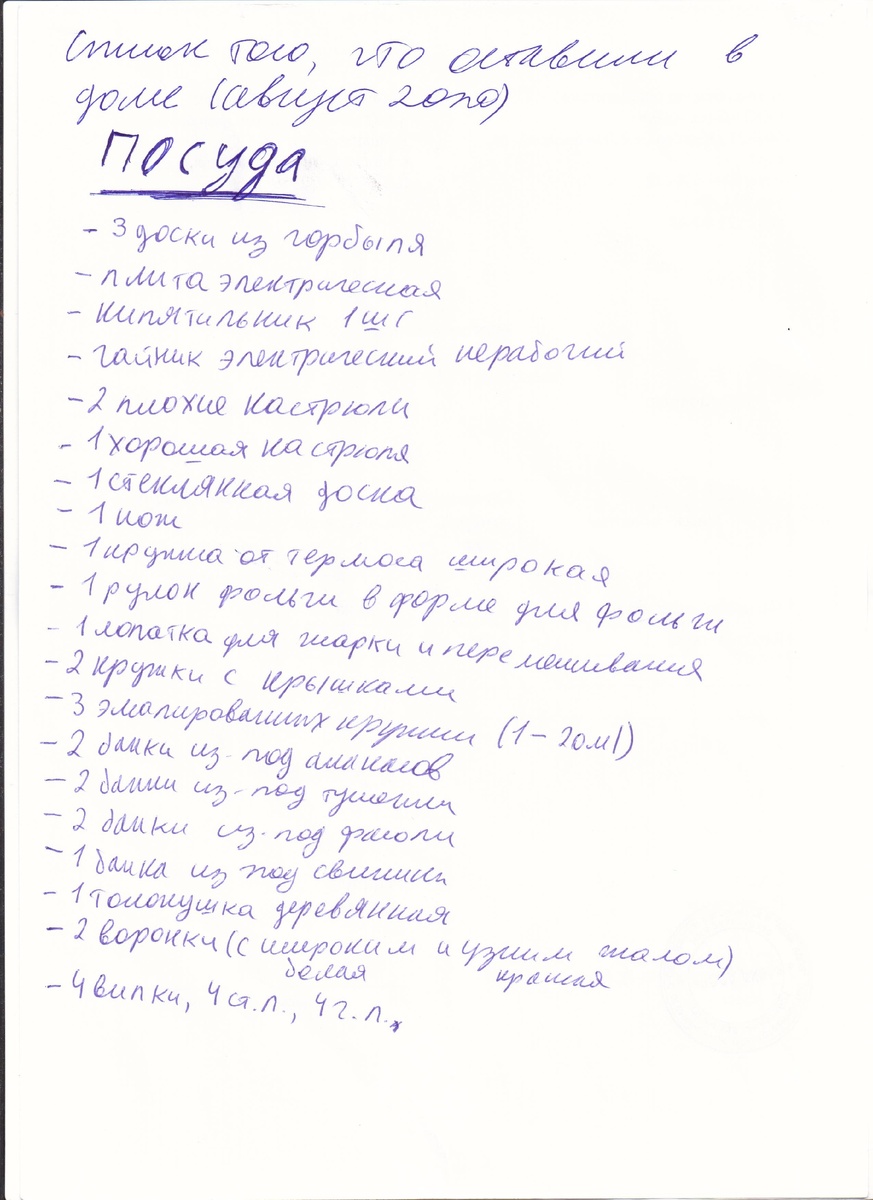 Список того, что оставили в
доме (август 2020)
ПОСУДА
- 3 доски из горбыля
- плита электрическая
- кипятильник 1 шт
- чайник электрический нерабочий
- 2 плохие кастрюли
- 1 хорошая кастрюля
- 1 стеклянная доска
- 1 нож
- 1 кружка от термоса широкая
- 1 рулон фольги в форме для фольги
- 1 лопатка для жарки и перемешивания
- 2 кружки с крышками
- 3 эмалированных кружки (1 – 20 ml)
- 2 банки из-под ананасов
- 2 банки из-под тушенки
- 2 банки из-под фасоли
- 1 банка из под свинины
- 1 толокушка деревянная
- 2 воронки (с широким и узким жалом)
белая красная
- 4 вилки, 4 ст.л., 4 ч.л.,